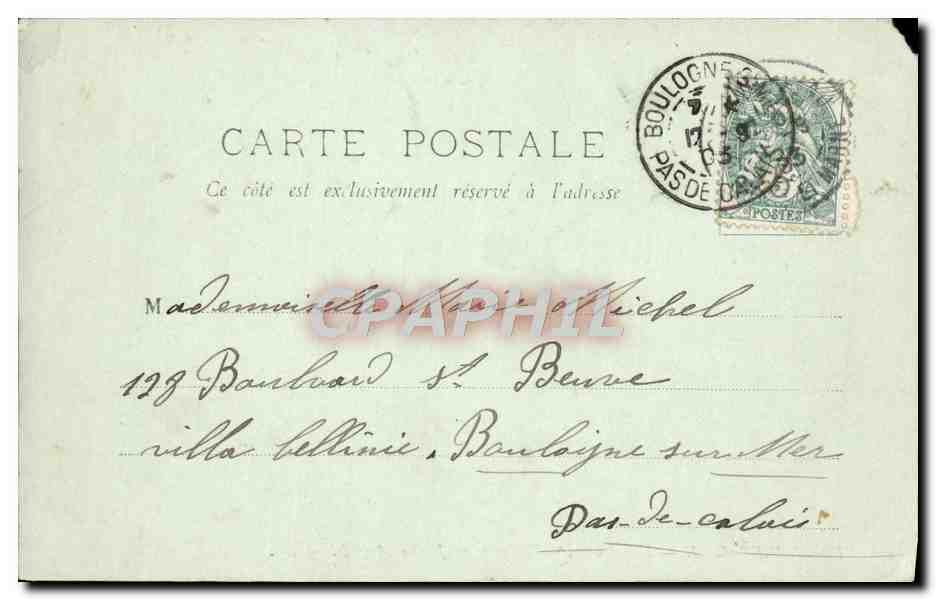 CARTE POSTALE
Ce côté est exclusivement réservé à l'adresse
BOULOGNE S
17
03
PAS DE CALAIS
5
POSTES
Mademoiselle Marie Michel
128 Boulvard St Beuve
villa bellinie. Boulogne sur Mer
Pas-de-calais
CPAPHIL